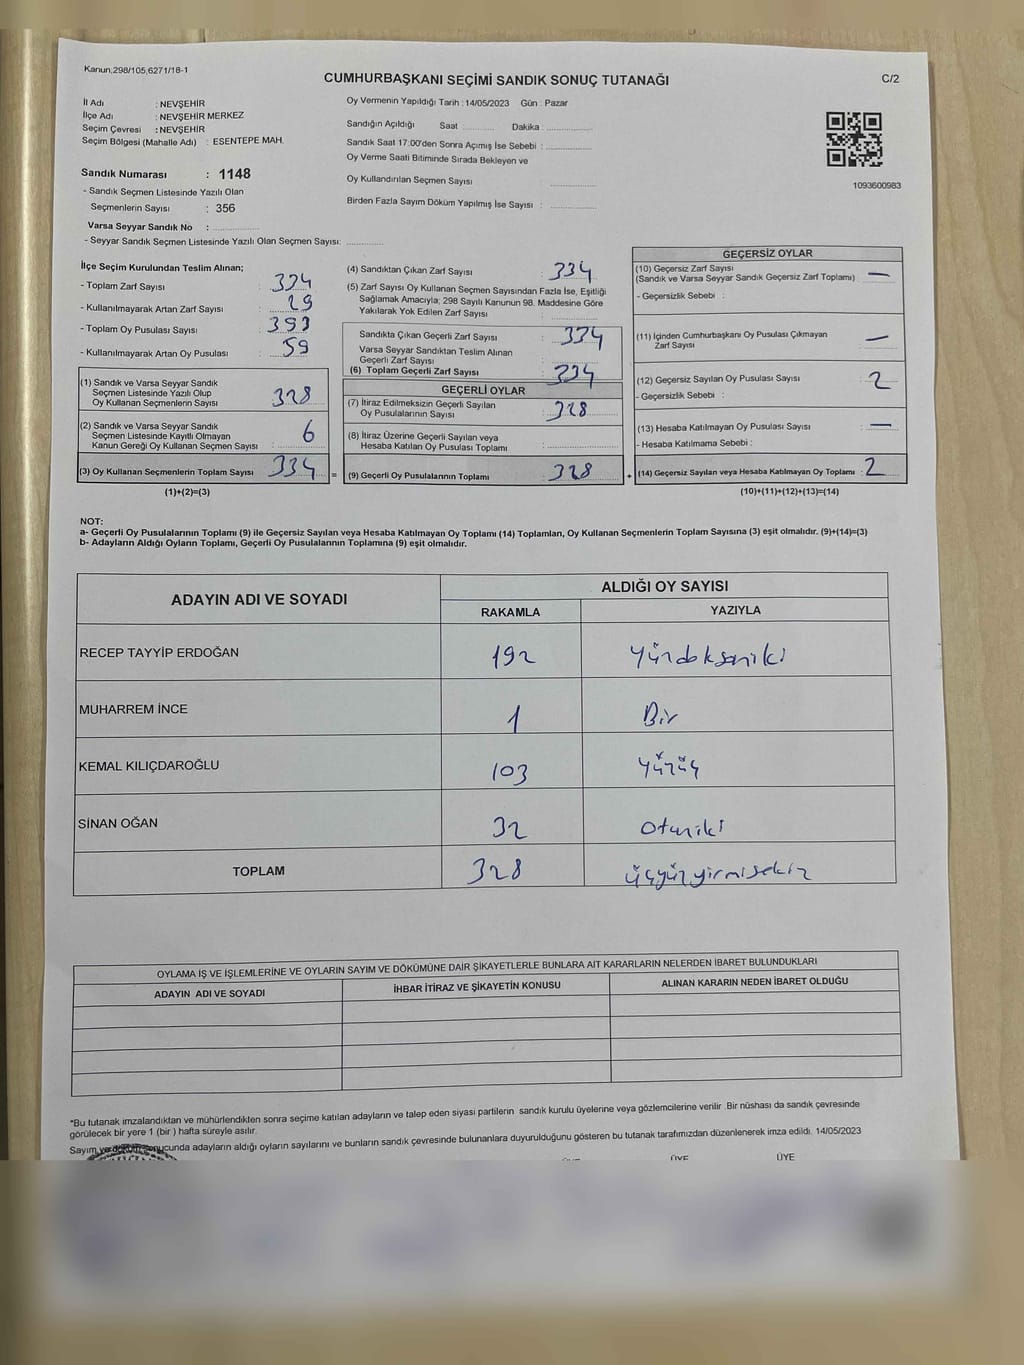 Kanun,298/105,6271/18-1
CUMHURBAŞKANI SEÇİMİ SANDIK SONUÇ TUTANAĞI
C/2
İl Adı : NEVŞEHİR
İlçe Adı : NEVŞEHİR MERKEZ
Seçim Çevresi : NEVŞEHİR
Seçim Bölgesi (Mahalle Adı) : ESENTEPE MAH.
Sandık Numarası : 1148
- Sandık Seçmen Listesinde Yazılı Olan
Seçmenlerin Sayısı : 356
Varsa Seyyar Sandık No :
- Seyyar Sandık Seçmen Listesinde Yazılı Olan Seçmen Sayısı:
Oy Vermenin Yapıldığı Tarih : 14/05/2023 Gün : Pazar
Sandığın Açıldığı Saat Dakika :
Sandık Saat 17.00'den Sonra Açımış İse Sebebi :
Oy Verme Saati Bitiminde Sırada Bekleyen ve
Oy Kullandırılan Seçmen Sayısı :
Birden Fazla Sayım Döküm Yapılmış İse Sayısı :
1093600983
İlçe Seçim Kurulundan Teslim Alınan;
- Toplam Zarf Sayısı :
- Kullanılmayarak Artan Zarf Sayısı :
- Toplam Oy Pusulası Sayısı : 393
- Kullanılmayarak Artan Oy Pusulası : 59
(1) Sandık ve Varsa Seyyar Sandık
Seçmen Listesinde Yazılı Olup
Oy Kullanan Seçmenlerin Sayısı : 328
(2) Sandık ve Varsa Seyyar Sandık
Seçmen Listesinde Kayıtlı Olmayan
Kanun Gereği Oy Kullanan Seçmen Sayısı : 6
(3) Oy Kullanan Seçmenlerin Toplam Sayısı : 334 =
(1)+(2)=(3)
(4) Sandıktan Çıkan Zarf Sayısı : 334
(5) Zarf Sayısı Oy Kullanan Seçmen Sayısından Fazla İse, Eşitliği
Sağlamak Amacıyla; 298 Sayılı Kanunun 98. Maddesine Göre
Yakılarak Yok Edilen Zarf Sayısı :
Sandıkta Çıkan Geçerli Zarf Sayısı : 334
Varsa Seyyar Sandıktan Teslim Alınan
Geçerli Zarf Sayısı :
(6) Toplam Geçerli Zarf Sayısı : 334
GEÇERLİ OYLAR
(7) İtiraz Edilmeksizin Geçerli Sayılan
Oy Pusulalarının Sayısı : 328
(8) İtiraz Üzerine Geçerli Sayılan veya
Hesaba Katılan Oy Pusulası Toplamı :
(9) Geçerli Oy Pusulalarının Toplamı : 328 +
GEÇERSİZ OYLAR
(10) Geçersiz Zarf Sayısı
(Sandık ve Varsa Seyyar Sandık Geçersiz Zarf Toplamı) : —
- Geçersizlik Sebebi :
(11) İçinden Cumhurbaşkanı Oy Pusulası Çıkmayan
Zarf Sayısı : —
(12) Geçersiz Sayılan Oy Pusulası Sayısı : 2
- Geçersizlik Sebebi :
(13) Hesaba Katılmayan Oy Pusulası Sayısı : —
- Hesaba Katılmama Sebebi :
(14) Geçersiz Sayılan veya Hesaba Katılmayan Oy Toplamı : 2
(10)+(11)+(12)+(13)=(14)
NOT:
a- Geçerli Oy Pusulalarının Toplamı (9) ile Geçersiz Sayılan veya Hesaba Katılmayan Oy Toplamı (14) Toplamları, Oy Kullanan Seçmenlerin Toplam Sayısına (3) eşit olmalıdır. (9)+(14)=(3)
b- Adayların Aldığı Oyların Toplamı, Geçerli Oy Pusulalarının Toplamına (9) eşit olmalıdır.
ADAYIN ADI VE SOYADI ALDIĞI OY SAYISI
RAKAMLA YAZIYLA
RECEP TAYYİP ERDOĞAN 192 Yüzdoksaniki
MUHARREM İNCE 1 Bir
KEMAL KILIÇDAROĞLU 103 Yüzüç
SİNAN OĞAN 32 Otuziki
TOPLAM 328 üçyüzyirmisekiz
OYLAMA İŞ VE İŞLEMLERİNE VE OYLARIN SAYIM VE DÖKÜMÜNE DAİR ŞİKAYETLERLE BUNLARA AİT KARARLARIN NELERDEN İBARET BULUNDUKLARI
ADAYIN ADI VE SOYADI İHBAR İTİRAZ VE ŞİKAYETİN KONUSU ALINAN KARARIN NEDEN İBARET OLDUĞU
*Bu tutanak imzalandıktan ve mühürlendikten sonra seçime katılan adayların ve talep eden siyasi partilerin sandık kurulu üyelerine veya gözlemcilerine verilir. Bir nüshası da sandık çevresinde
görülecek bir yere 1 (bir ) hafta süreyle asılır.
Sayım ve sonucunda adayların aldığı oyların sayılarını ve bunların sandık çevresinde bulunanlara duyurulduğunu gösteren bu tutanak tarafımızdan düzenlenerek imza edildi. 14/05/2023
ÜYE ÜYE